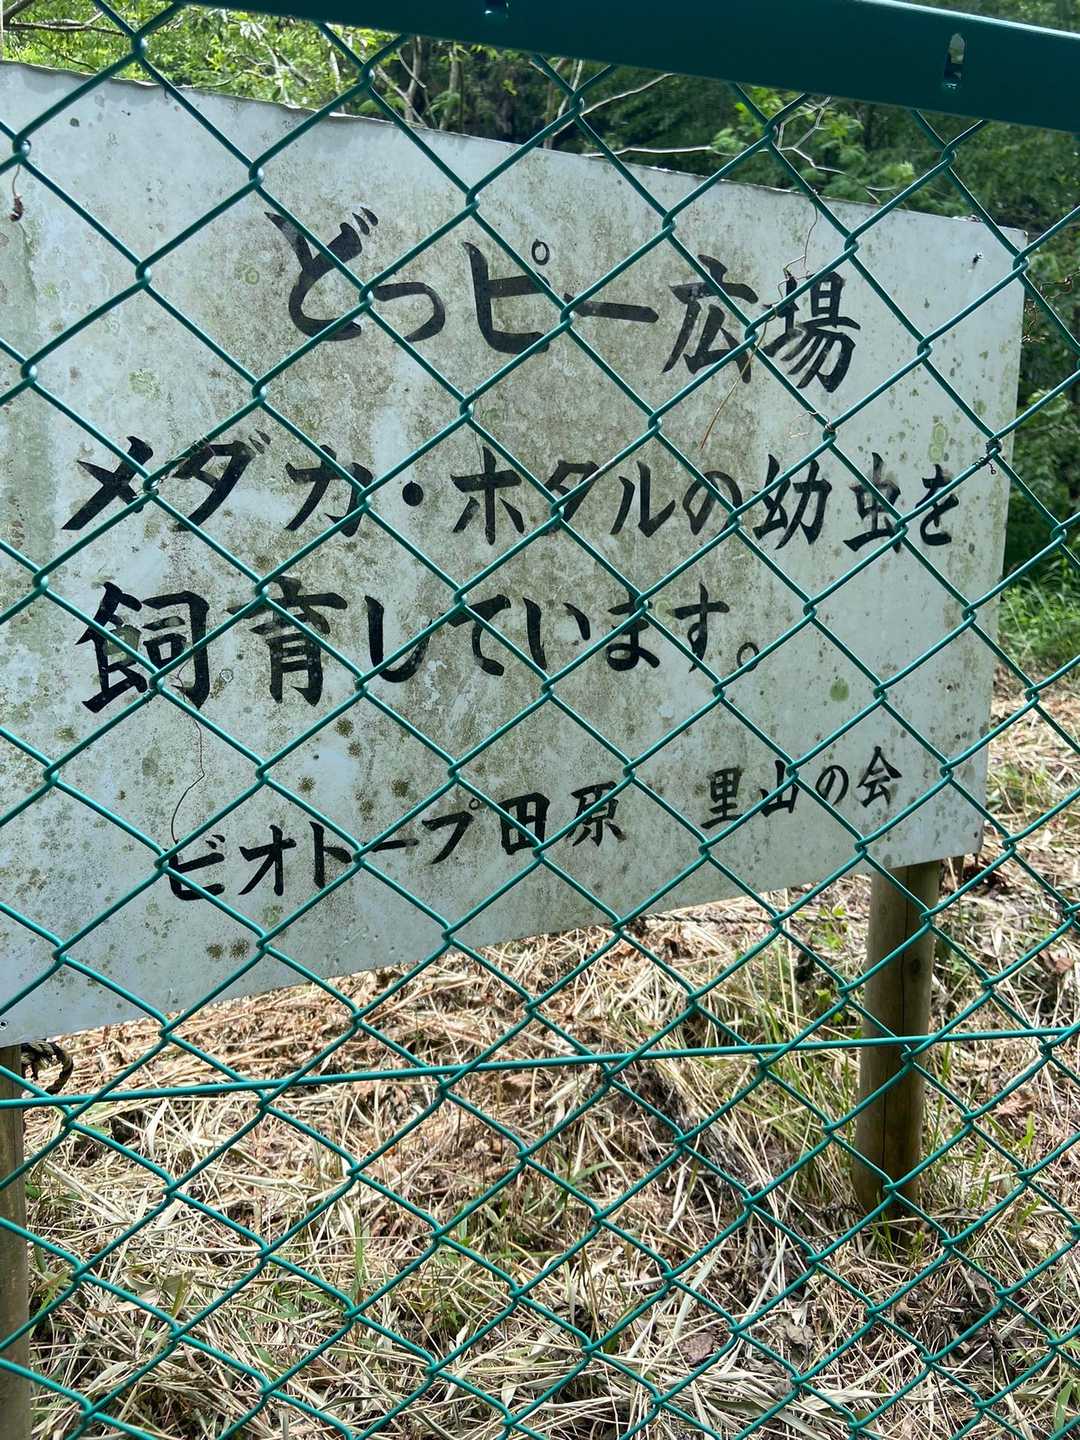 どっピー広場
メダカ・ホタルの幼虫を
飼育しています。
ビオトープ田原 里山の会